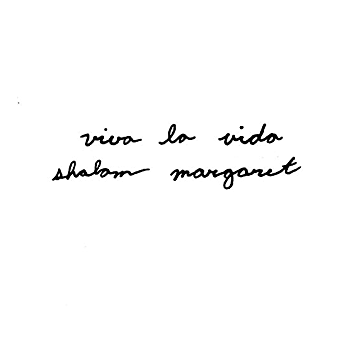 viva la vida
shalom margaret